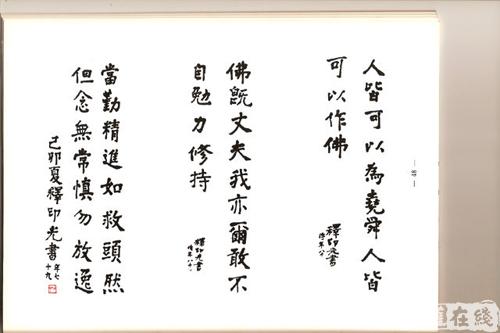 人皆可以為堯舜人皆
可以作佛
釋印光書
佛既丈夫我亦爾敢不
自勉力修持
釋印光書
當勤精進如救頭然
但念無常慎勿放逸
己卯夏釋印光書
年七十九
在綫